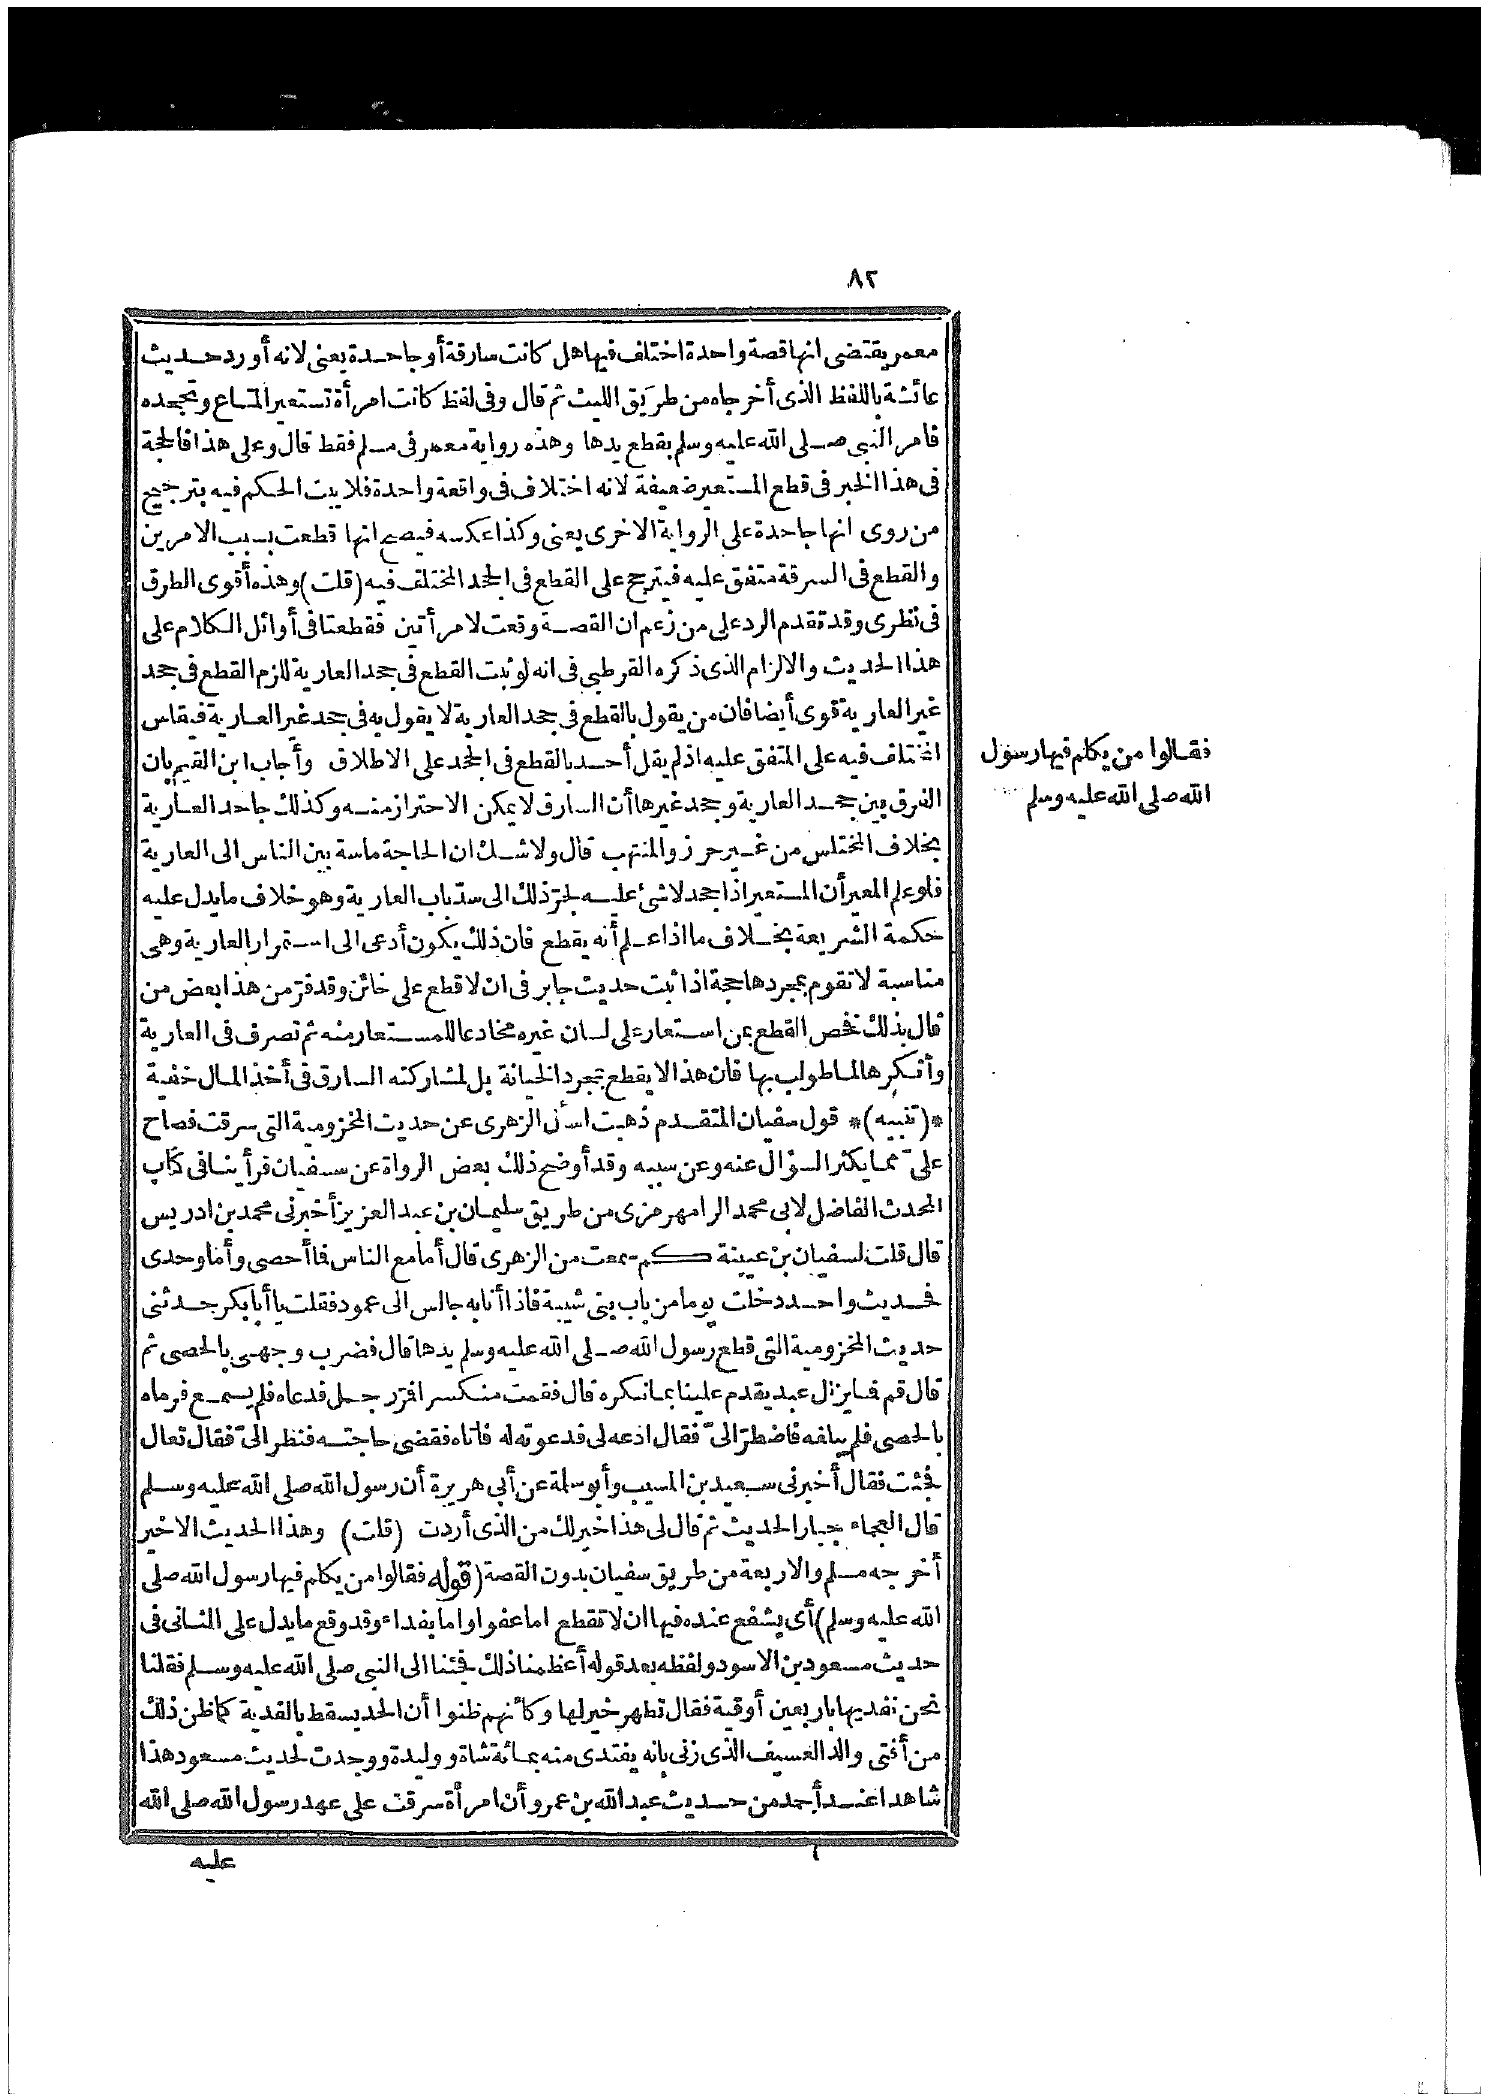 ٨٢
معمر يقتضى انها قصة واحدة اختلف فيها هل كانت سارقة أو جاحدة يعنى لانه أورد حديث
عائشة باللفظ الذى أخرجاه من طريق الليث ثم قال وفى لفظ كانت امرأة تستعير المتاع وتجحده
فامر النبى صلى الله عليه وسلم بقطع يدها وهذه رواية معمر فى مسلم فقط قال وعلى هذا فالحجة
فى هذا الخبر فى قطع المستعير ضعيفة لانه اختلاف فى واقعة واحدة فلا يبت الحكم فيه بترجيح
من روى انها جاحدة على الرواية الاخرى يعنى وكذا عكسه فيصح انها قطعت بسبب الامرين
والقطع فى السرقة متفق عليه فيترجح على القطع فى الجحد المختلف فيه (قلت) وهذه أقوى الطرق
فى نظرى وقد تقدم الرد على من زعم ان القصة وقعت لامرأتين فقطعتا فى أوائل الكلام على
هذا الحديث والالزام الذى ذكره القرطبى فى انه لو ثبت القطع فى جحد العارية للزم القطع فى جحد
غير العارية قوى أيضا فان من يقول بالقطع فى جحد العارية لا يقول به فى جحد غير العارية فيقاس
المختلف فيه على المتفق عليه اذ لم يقل أحد بالقطع فى الجحد على الاطلاق وأجاب ابن القيم بان
الفرق بين جحد العارية وجحد غيرها أن السارق لا يمكن الاحتراز منه وكذلك جاحد العارية
بخلاف المختلس من غير حرز والمنتهب قال ولا شك ان الحاجة ماسة بين الناس الى العارية
فلو علم المعير أن المستعير اذا جحد لا شئ عليه لجرّ ذلك الى سدّ باب العارية وهو خلاف ما يدل عليه
حكمة الشريعة بخلاف ما اذا علم أنه يقطع فان ذلك يكون أدعى الى استمرار العارية وهى
مناسبة لا تقوم بمجردها حجة اذا ثبت حديث جابر فى ان لا قطع على خائن وقد فرّ من هذا بعض من
قال بذلك فخص القطع بمن استعار على لسان غيره مخادعا للمستعار منه ثم تصرف فى العارية
وأنكرها لما طولب بها فان هذا لا يقطع بمجرد الخيانة بل لمشاركته السارق فى أخذ المال خفية
*(تنبيه)* قول سفيان المتقدم ذهبت اسأل الزهرى عن حديث المخزومية التى سرقت فصاح
علىّ مما يكثر السؤال عنه وعن سببه وقد أوضح ذلك بعض الرواة عن سفيان فرأينا فى كتاب
المحدث الفاضل لابى محمد الرامهرمزى من طريق سليمان بن عبد العزيز أخبرنى محمد بن ادريس
قال قلت لسفيان بن عيينة كم سمعت من الزهرى قال أما مع الناس فما أحصى وأما وحدى
فحديث واحد دخلت يوما من باب بنى شيبة فاذا أنا به جالس الى عمود فقلت يا أبا بكر حدثنى
حديث المخزومية التى قطع رسول الله صلى الله عليه وسلم يدها قال فضرب وجهى بالحصى ثم
قال قم فما يزال عبد يقدم علينا بما نكره قال فقمت منكسرا فمرّ رجل فدعاه فلم يسمع فرماه
بالحصى فلم يبلغه فاضطرّ الىّ فقال ادعه لى فدعوته له فاتاه فقضى حاجته فنظر الىّ فقال تعال
فجئت فقال أخبرنى سعيد بن المسيب وأبو سلمة عن أبى هريرة أن رسول الله صلى الله عليه وسلم
قال العجماء جبار الحديث ثم قال لى هذا خير لك من الذى أردت (قلت) وهذا الحديث الاخير
أخرجه مسلم والاربعة من طريق سفيان بدون القصة (قوله فقالوا من يكلم فيها رسول الله صلى
الله عليه وسلم) أى يشفع عنده فيها ان لا تقطع اما عفوا واما بفداء وقد وقع ما يدل على الثانى فى
حديث مسعود بن الاسود ولفظه بعد قوله أعظمنا ذلك فجئنا الى النبى صلى الله عليه وسلم فقلنا
نحن نفديها باربعين أوقية فقال تطهر خير لها وكأنهم ظنوا أن الحد يسقط بالفدية كما ظن ذلك
من أفتى والد العسيف الذى زنى بانه يفتدى منه بمائة شاة ووليدة ووجدت لحديث مسعود هذا
شاهدا عند أحمد من حديث عبد الله بن عمرو أن امرأة سرقت على عهد رسول الله صلى الله
عليه
فقالوا من يكلم فيها رسول
الله صلى الله عليه وسلم